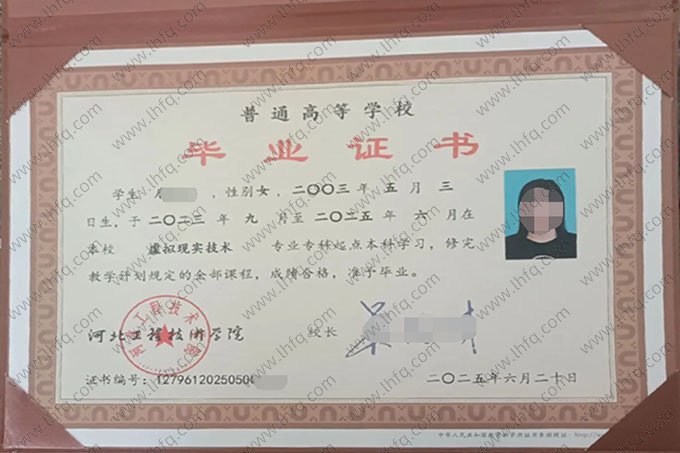 普通高等学校
毕业证书
学生 ，性别女，二〇〇三年五月三
日生，于二〇二三年九月至二〇二五年六月在
本校 虚拟现实技术 专业专科起点本科学习，修完
教学计划规定的全部课程，成绩合格，准予毕业。
河北工程技术学院
河北工程技术学院 校长
证书编号：12796120250500
二〇二五年六月二十日
中华人民共和国教育部学历证书查询网址：http://w
www.lhfq.com